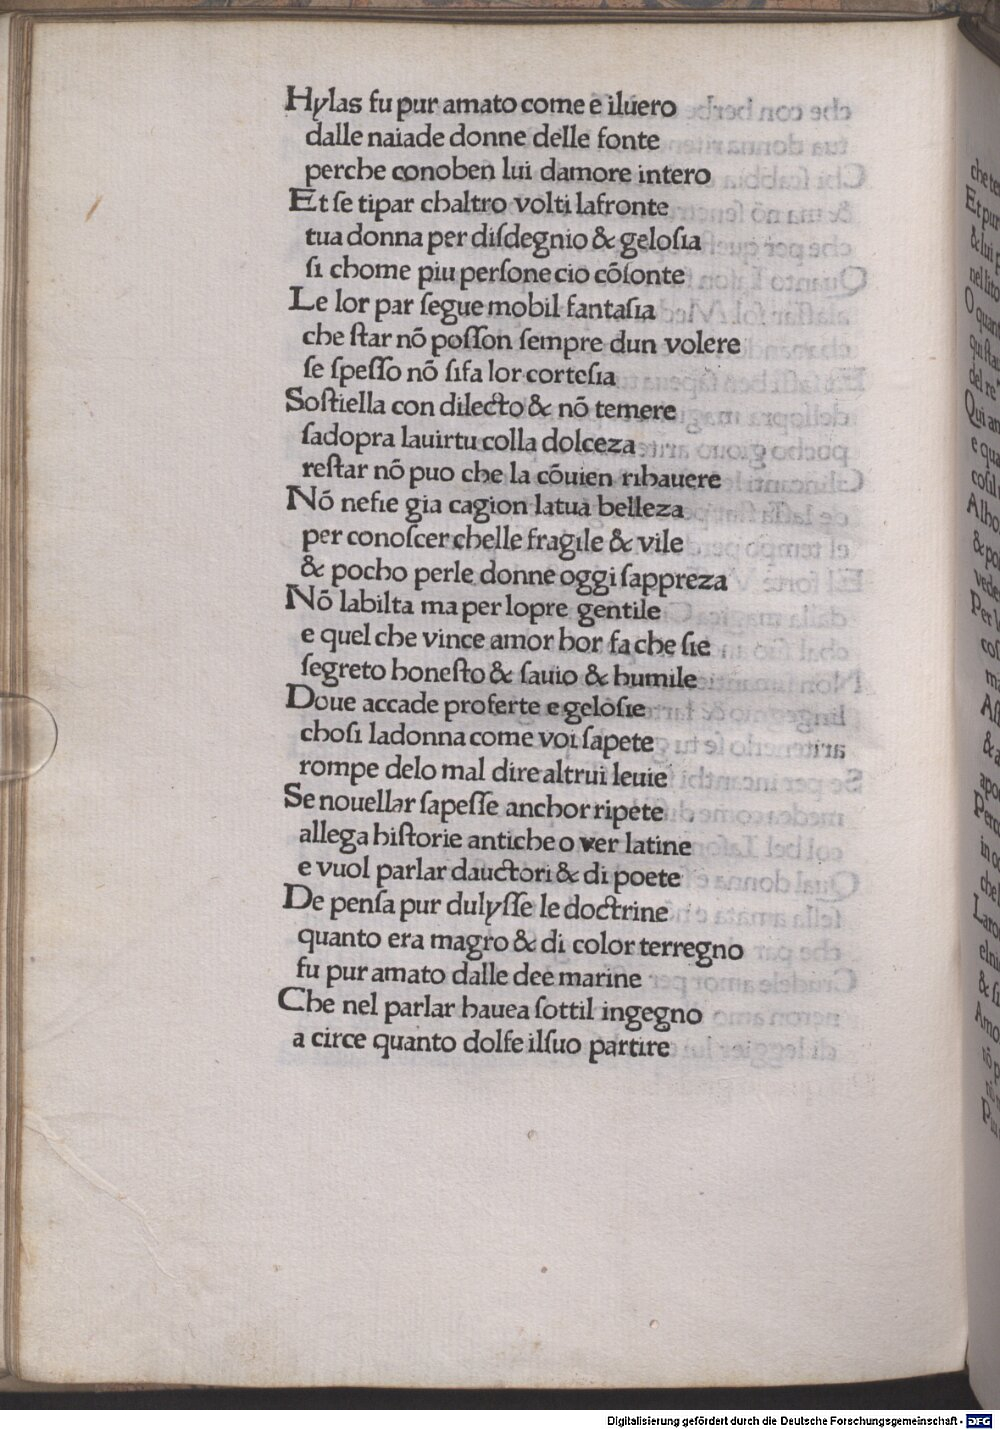 Hylas fu pur amato come e iluero
dalle naiade donne delle fonte
perche conoben lui damore intero
Et ſe tipar chaltro volti lafronte
tua donna per diſdegnio & geloſia
ſi chome piu perſone cio cõſonte
Le lor par ſegue mobil fantaſia
che ſtar nõ poſſon ſempre dun volere
ſe ſpeſſo nõ ſifa lor corteſia
Soſtiella con dilecto & nõ temere
ſadopra lauirtu colla dolceza
reſtar nõ puo che la cõuien ribauere
Nõ nefie gia cagion latua belleza
per conoſcer chelle fragile & vile
& pocho perle donne oggi ſappreza
Nõ labilta ma per lopre gentile
e quel che vince amor hor fa che ſie
ſegreto honeſto & ſauio & humile
Doue accade proferte e geloſie
choſi ladonna come voi ſapete
rompe delo mal dire altrui leuie
Se nouellar ſapeſſe anchor ripete
allega hiſtorie antiche o ver latine
e vuol parlar dauctori & di poete
De penſa pur dulyſſe le doctrine
quanto era magro & di color terregno
fu pur amato dalle dee marine
Che nel parlar hauea ſottil ingegno
a circe quanto dolſe ilſuo partire
Digitalisierung gefördert durch die Deutsche Forschungsgemeinschaft - DFG